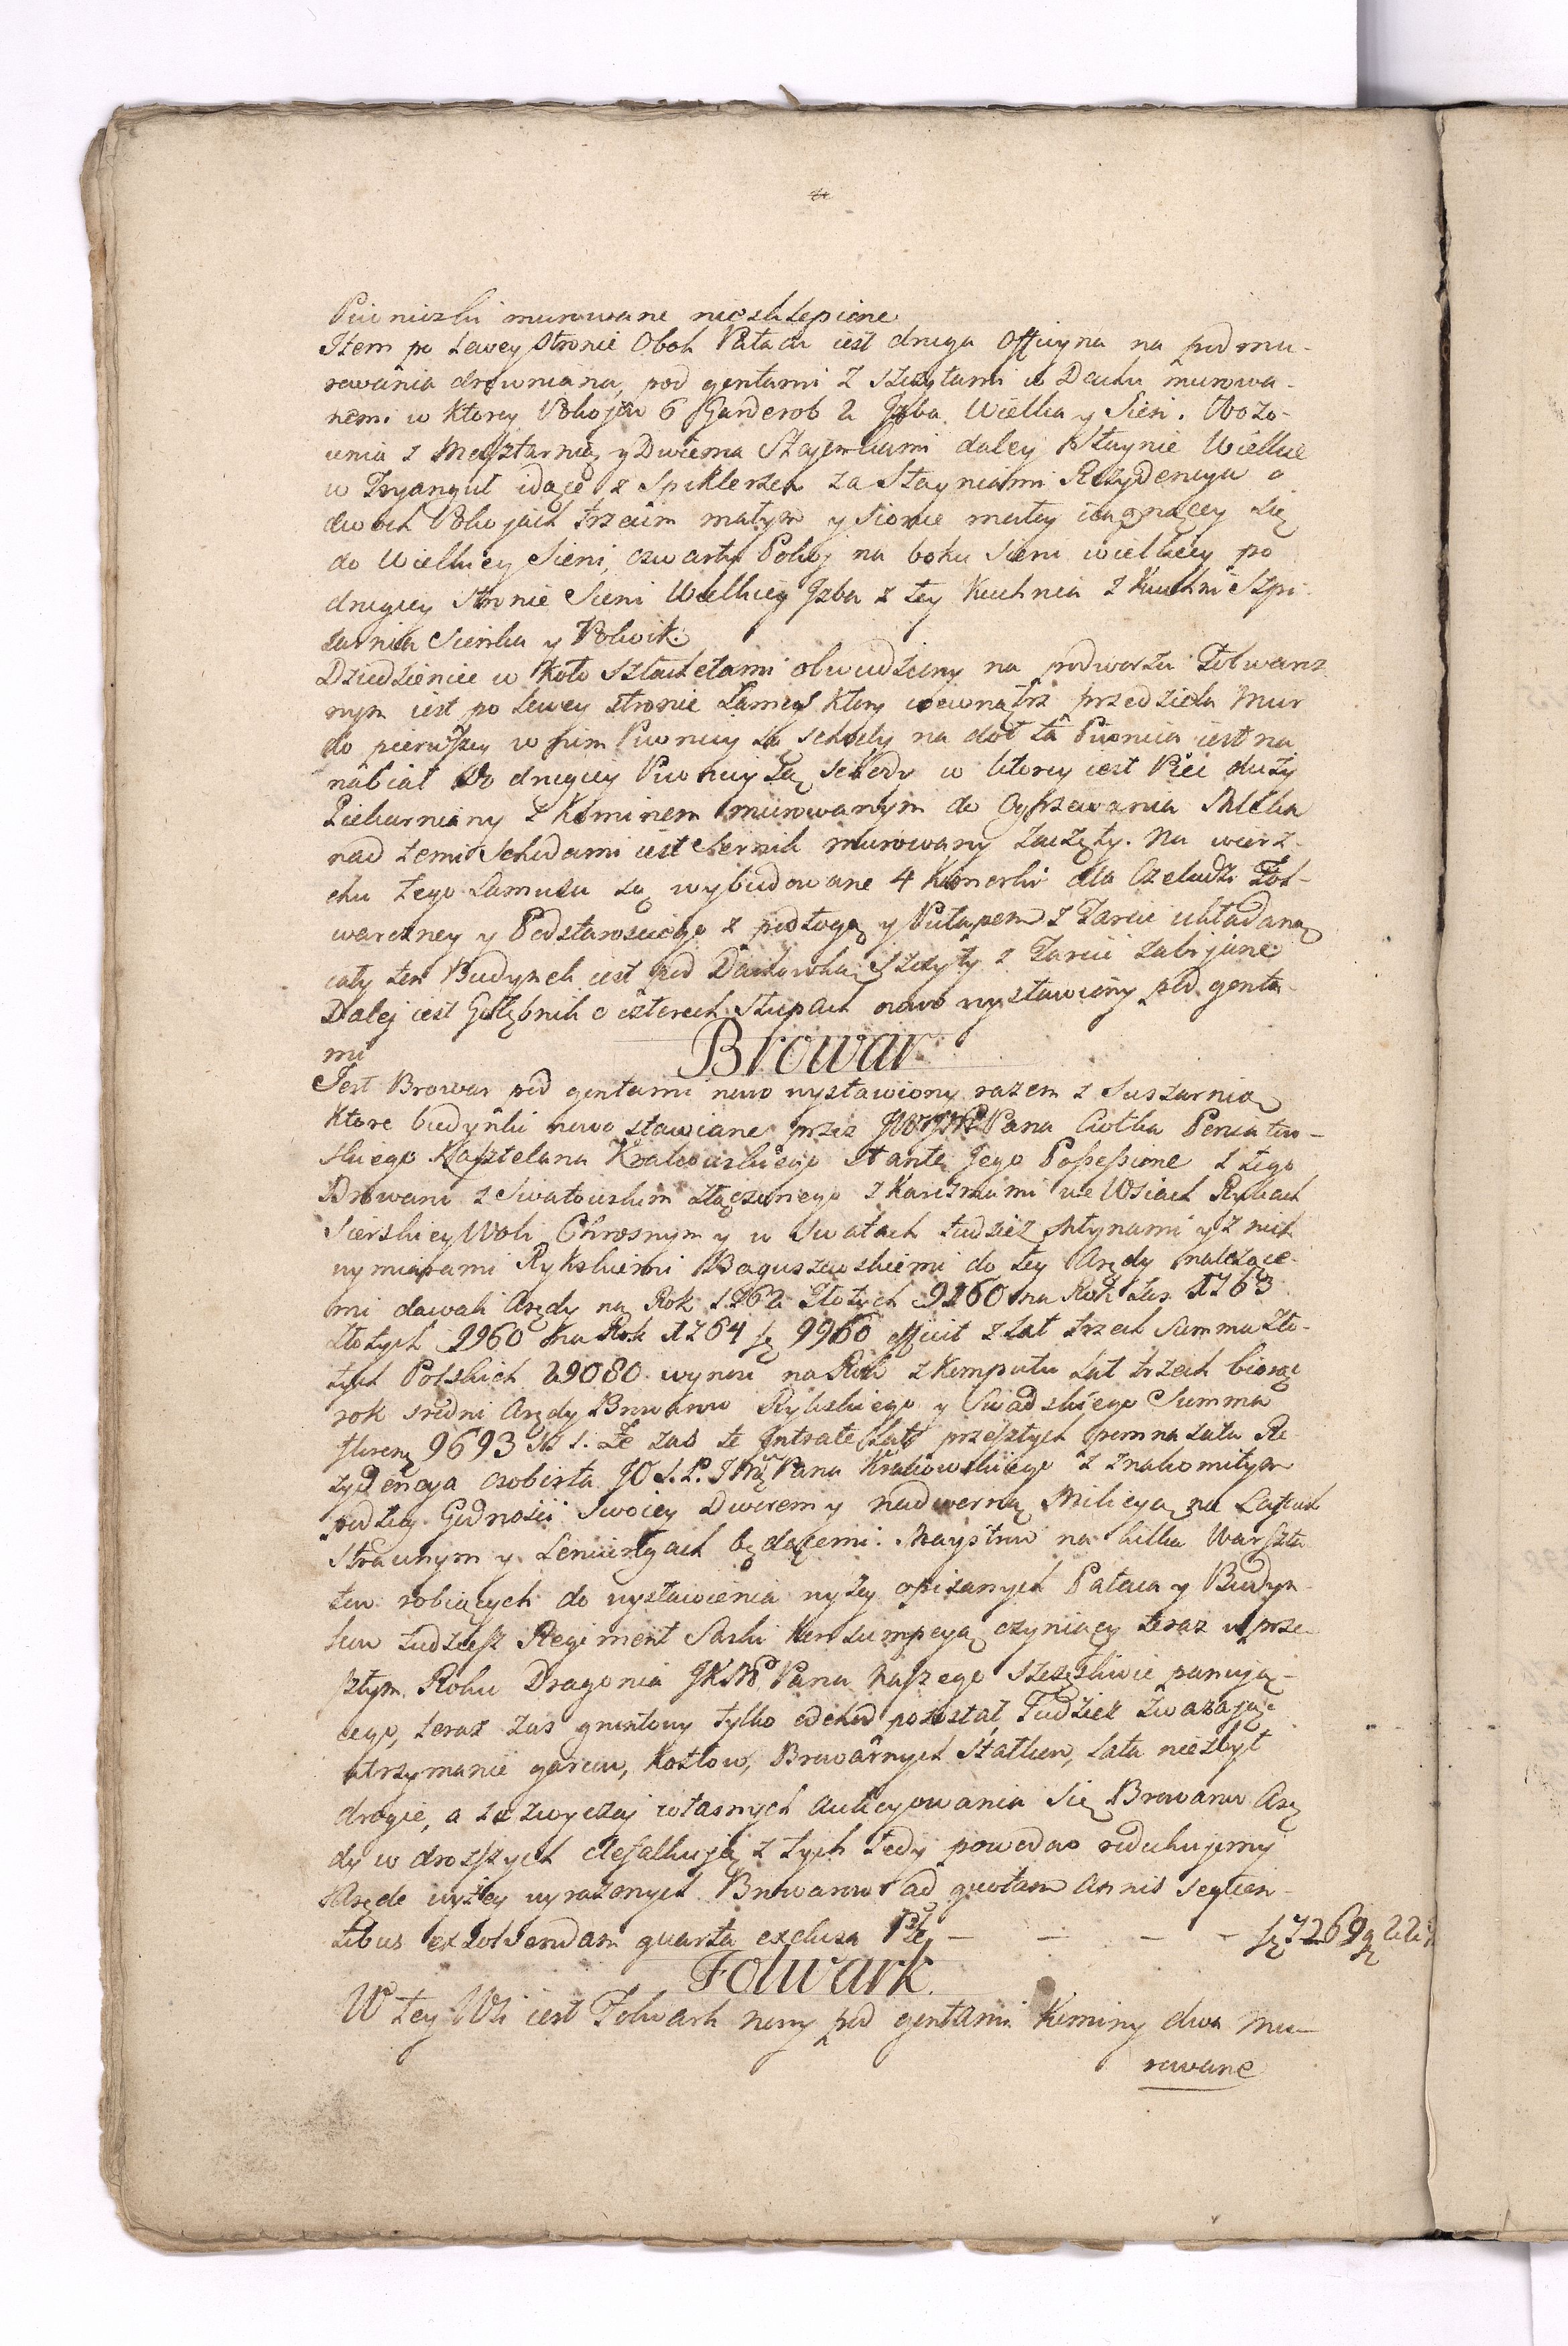 Piwniczki murowane niesklepione
Item po Lewey stronie Obok Pałacu iest druga Officyna na podmu-
rowania drewniana, pod gontami z szczytami w Dachu murowa-
nemi w ktorey Pokojów 6 Garderob 2 Izba Wielka y Sień. Wozo-
wnia z Masztarnią y Dwiema Stajenkami daley Staynie Wielkie
w Tryanguł idące z Spiklerzem za Stayniami Rezydencya o
dwoch Pokojach trzecim małym y sionce małey ciągnącey się
do Wielkiey Sieni, czwarty Pokoj na boku sieni wielkiey po
drugiey stronie Sieni Wielkiey Izba z tey Kuchnia z Kuchni Szpi-
żarnia Sionka y Pokoik.
Dziedzieniec w koło Sztachetami obwiedziony na podworzu Folwarz
nym iest po Lewey stronie Lamus ktory wewnątrz przedziela Mur
do pierwszey w nim Piwnicy są schody na doł ta Piwnica iest na
nabiał Do drugiey Piwnicy są schody w ktorey iest Piec duży
Piekarniany z Kominem murowanym do Ogrzewania Mleka
nad temi Schodami iest Sernik murowany zaczęty. Na wierz-
chu tego Lamusu są wybudowane 4 Komorki dla Czeladzi Fol-
warczney y Podstarościego z podłogą y Pułapem z Tarcic układaną
cały ten Budynek iest pod Dachowką Szczyty z Tarcic zabijane
Daley iest Gołębnik o czterech Słupach nowo wystawiony pod gonta-
mi
Browar
Jest Browar pod gontami nowo wystawiony razem z Suszarnią
Ktore budynki nowo stawiane przez JWJMP Pana Ciołka Poniatow-
skiego Kasztelana Krakowskiego stante Jego Possessione z tego
Browaru z Swatowskim złączonego z Karczmami we Wsiach Rykach
Sierskiey Woli Chrosnym y w Swatach tudziez Młynami y z nich
wymiarami Rykskiemi Boguszewskiemi do tey Arędy należące-
mi dawali Arędy na Rok 1762 Złotych 9160 na Rok zas 1763
złotych 9960 Na Rok 1764 fl 9960 efficit z Lat trzech Summa Zło-
tych Polskich 29080 wynosi na Rok z komputu Lat trzech biorąc
rok sredni Arędy Browaru Rykskiego y Swadskiego Summa
florenų 9693 1. Że zas te Intrate Lat przeszłych pomnażała Re-
zydencya osobista JO. J.P. Pana Krakowskiego z znakomitym
podług Godności Swoiey Dworem y nadworną Milicyą na Lafach
strawnym y Leniungach będącemi. Maystrów na kilka Warszta
tów robiących do wystawienia wyżey opisanych Pałacu y Budyn-
kow tudziesz Regiment Saski konsumpcyą czyniący teraz w prze-
szłym Roku Dragonia JKM Pana Naszego szczęśliwie panują-
cego, teraz zas gruntowy tylko odchod pozostał, Tudziez zważając
utrzymanie garcow, Kotłow, Browarnych Statkow, lata niezbyt
drogie, a ze zwyczaj własnych aukcyowania się Browarow Arę
dy w droższych defalkują z tych tedy powodow redukujemy
Arędę wyżey wyrażonych Browarow ad quotam annis sequen-
tibus exsolvendam quarta exclusa Płę – – – – fl 7269 g 22½
Folwark.
W tey Wsi iest Folwark nowy pod gontami Kominy dwa Mu-
rowane